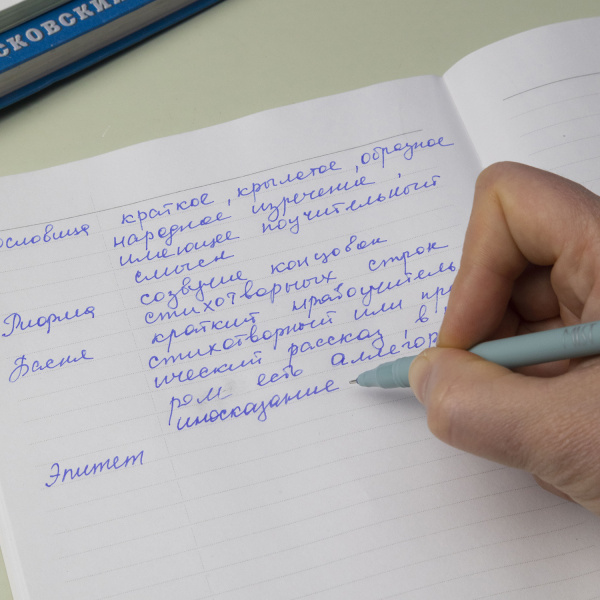 СКОВСКИЙ
ословица краткое, крылатое, образное
народное изречение,
имеющее поучительный
смысл
созвучие концовок
Рифма стихотворных строк
краткий нравоучитель
Басня стихотворный или пр
ический рассказ, в
ром есть аллегор
иносказание
Эпитет